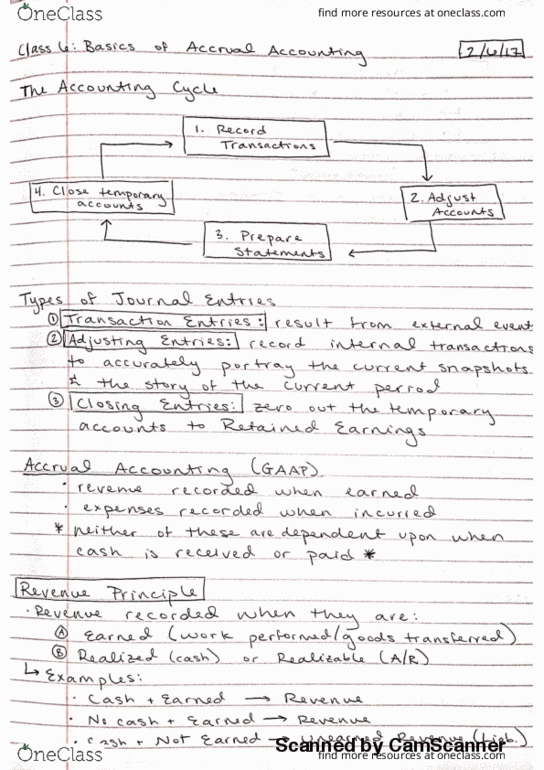 OneClass
find more resources at oneclass.com
Class 6: Basics of Accrual Accounting
2/6/17
The Accounting Cycle
1. Record
Transactions
4. Close temporary
accounts
2. Adjust
Accounts
3. Prepare
Statements
Types of Journal Entries
① Transaction Entries: result from external event
② Adjusting Entries: record internal transactions
to accurately portray the current snapshots
& the story of the current period
③ Closing Entries: zero out the temporary
accounts to Retained Earnings
Accrual Accounting (GAAP)
· revenue recorded when earned
· expenses recorded when incurred
* neither of these are dependent upon when
cash is received or paid *
Revenue Principle
· Revenue recorded when they are:
Ⓐ Earned (work performed/goods transferred)
Ⓑ Realized (cash) or Realizable (A/R)
↳ Examples:
· Cash + Earned → Revenue
· No cash + Earned → Revenue
· Cash + Not Earned → Unearned Revenue (Liab.)
Scanned by CamScanner
OneClass
find more resources at oneclass.com